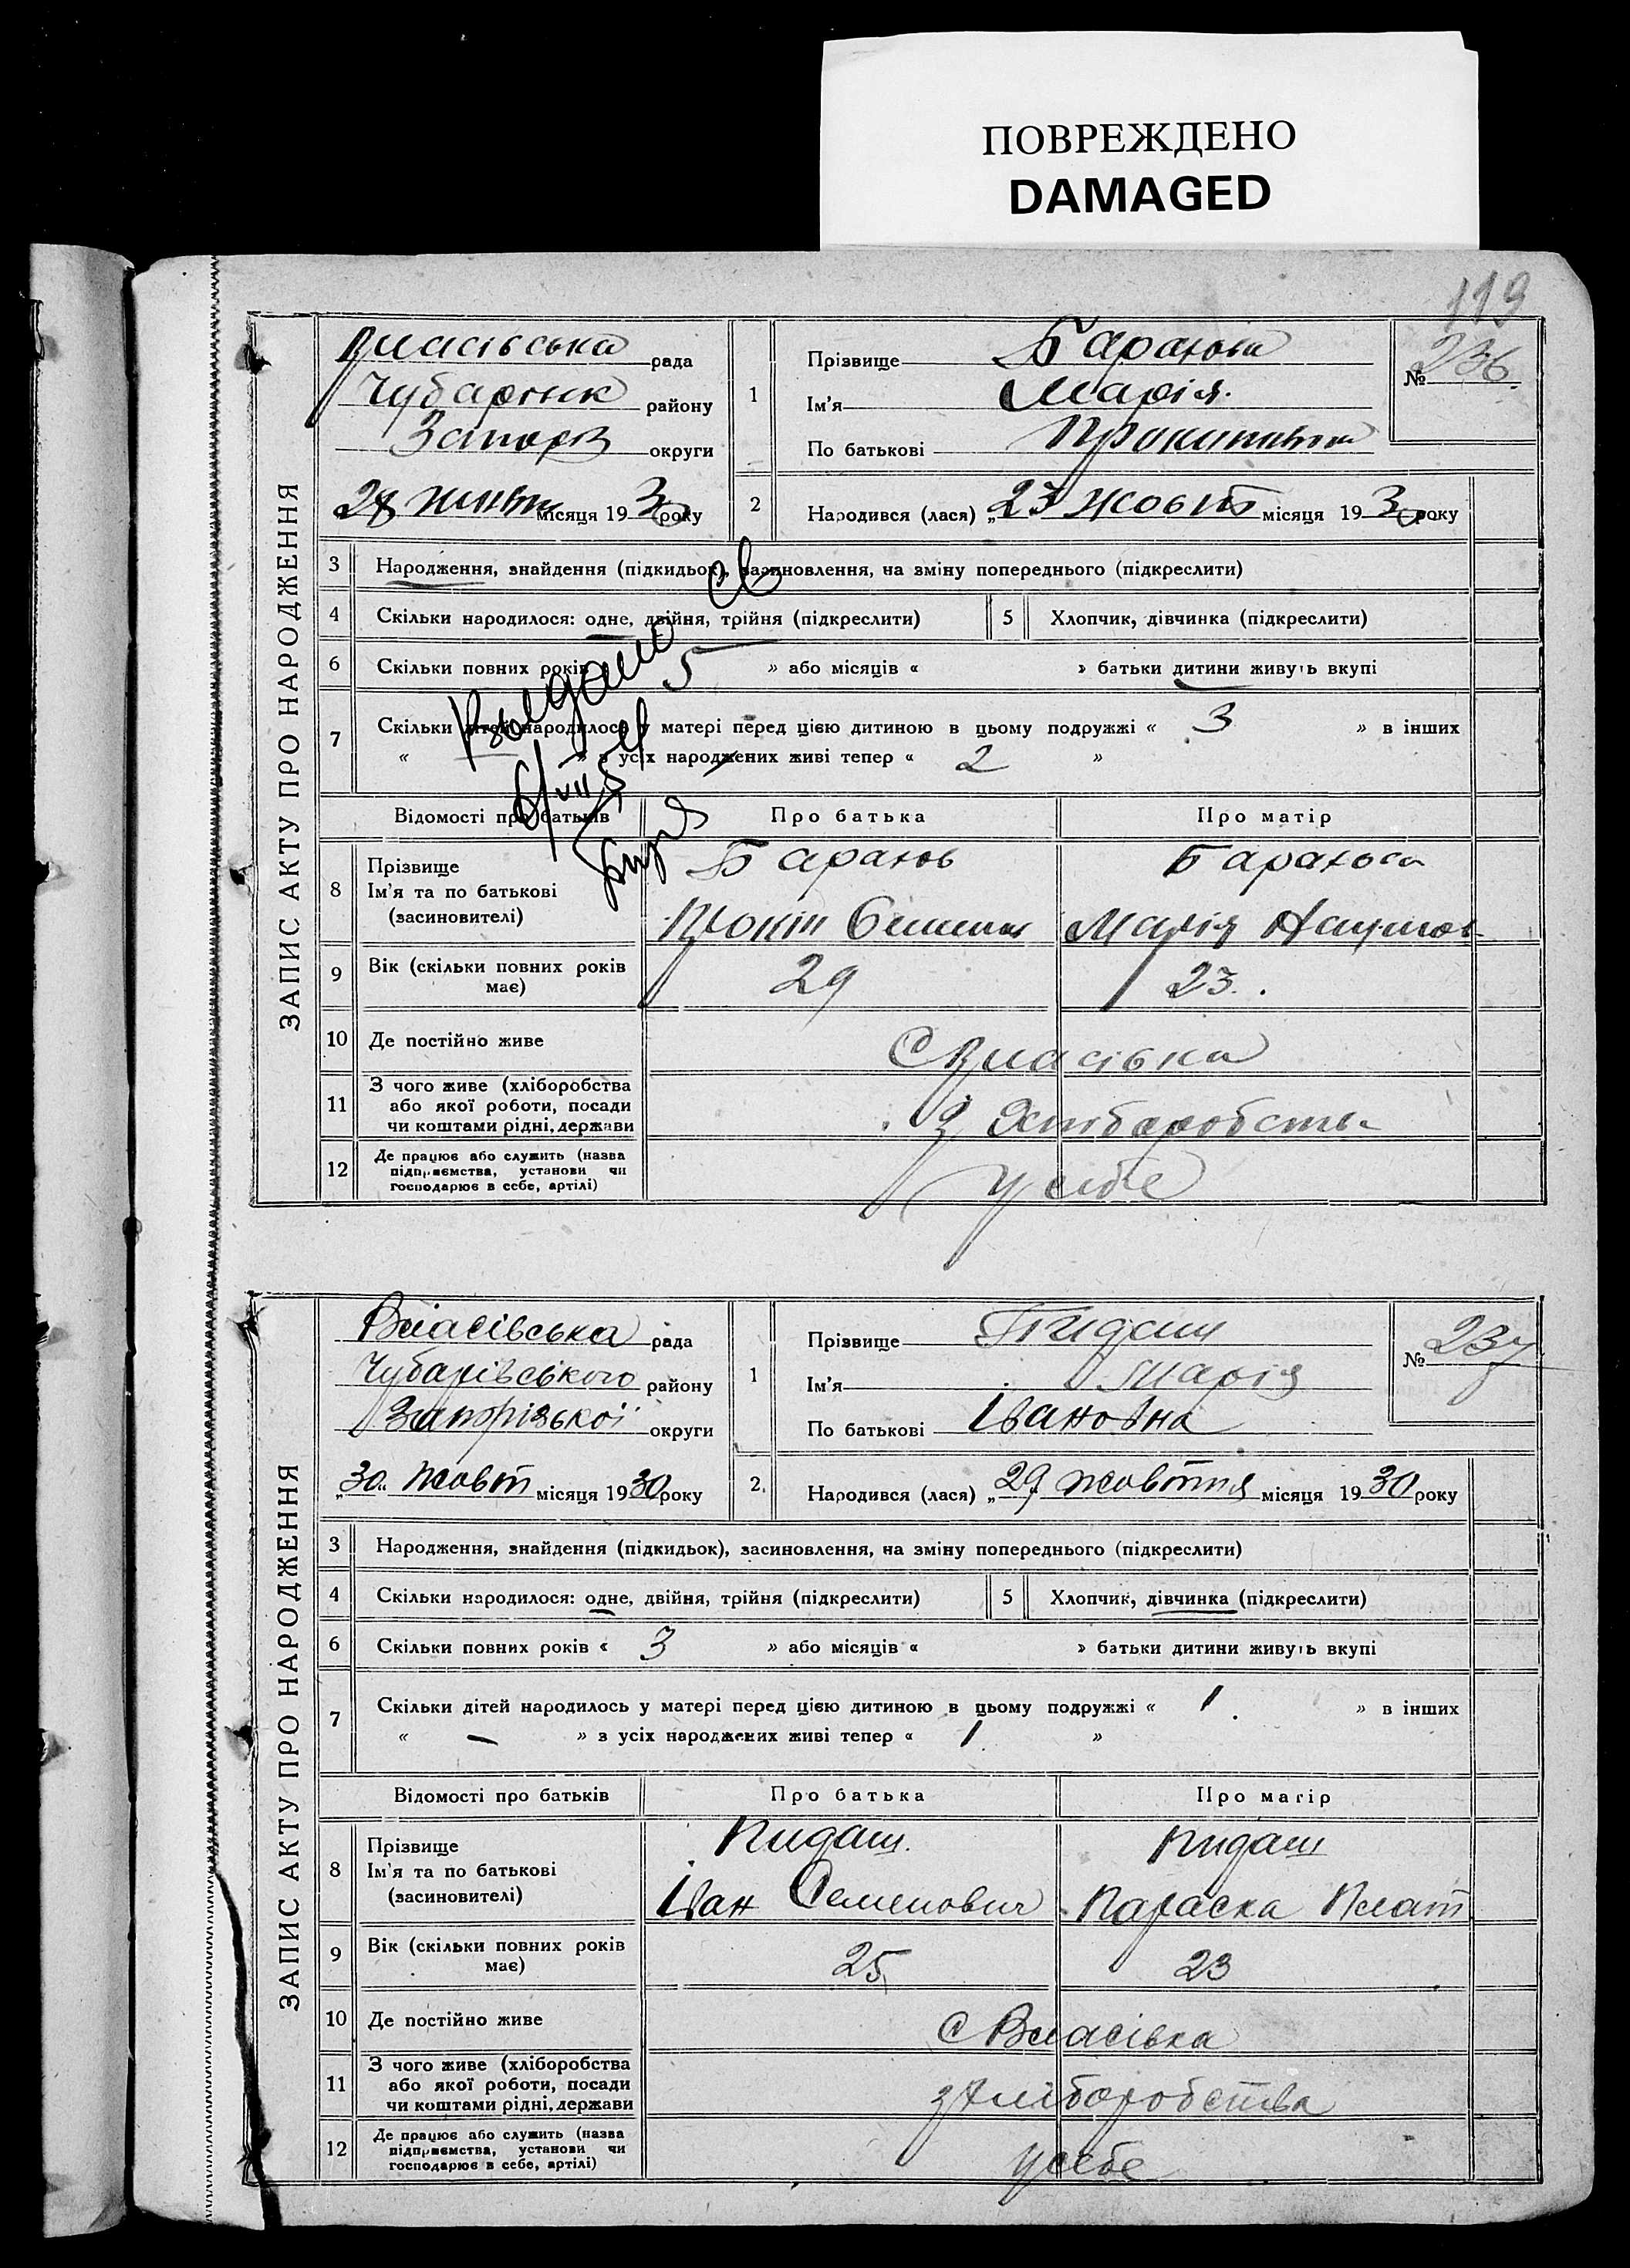 ПОВРЕЖДЕНО
DAMAGED
119
ЗАПИС АКТУ ПРО НАРОДЖЕННЯ
Власівська рада
району
Запоріз округи
місяця 1930 року
1
Прізвище Баранова
Ім'я Марія
По батькові
№ 236
2
Народився (лася) „23 Жовт місяця 1930 року
3 Народження, знайдення (підкидьок), засиновлення, на зміну попереднього (підкреслити)
4 Скільки народилося: одне, двійня, трійня (підкреслити)
5 Хлопчик, дівчинка (підкреслити)
6 Скільки повних років 5 » або місяців « » батьки дитини живуть вкупі
7 Скільки дітей народилось у матері перед цією дитиною в цьому подружжі « 3 » в інших
« » з усіх народжених живі тепер « 2 »
Выдано св
Відомості про батьків
Про батька
Про матір
8 Прізвище
Ім'я та по батькові
(засновителі)
Баранов
Баранова
Марія Наумов
9 Вік (скільки повних років має)
29
23
10 Де постійно живе
С Власівка
11 З чого живе (хліборобства
або якої роботи, посади
чи коштами рідні, держави
З Хліборобств
12 Де працює або служить (назва
підприємства, установи чи
господарює в себе, артілі)
у себе
ЗАПИС АКТУ ПРО НАРОДЖЕННЯ
Власівська рада
Чубарівського району
Запорізької округи
„30" жовт місяця 1930 року
1
Прізвище Пидаш
Ім'я Марія
По батькові Івановна
№ 237
2.
Народився (лася) „29" жовтня місяця 1930 року
3 Народження, знайдення (підкидьок), засиновлення, на зміну попереднього (підкреслити)
4 Скільки народилося: одне, двійня, трійня (підкреслити)
5 Хлопчик, дівчинка (підкреслити)
6 Скільки повних років « 3 » або місяців « » батьки дитини живуть вкупі
7 Скільки дітей народилось у матері перед цією дитиною в цьому подружжі « 1 » в інших
« – » з усіх народжених живі тепер « 1 »
Відомості про батьків
Про батька
Про матір
8 Прізвище
Ім'я та по батькові
(засиновителі)
Пидаш
Іван Семенович
Пидаш
Параска Плат
9 Вік (скільки повних років має)
25
23
10 Де постійно живе
С Власівка
11 З чого живе (хліборобства
або якої роботи, посади
чи коштами рідні, держави
з Хліборобства
12 Де працює або служить (назва
підприємства, установи чи
господарює в себе, артілі)
у себе